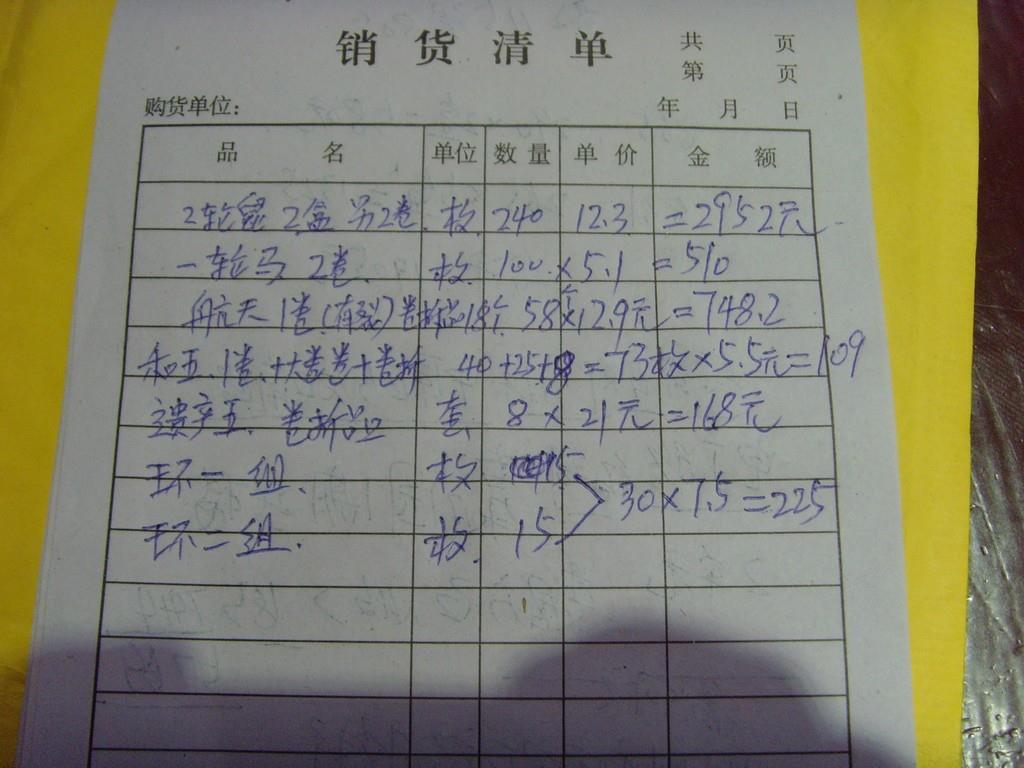 销货清单
共 页
第 页
购货单位: 年 月 日
品名 单位 数量 单价 金额
2轮鼠 2盒 另2卷. 枚. 240 12.3 =2952元
一轮马 2卷. 枚. 100. ×5.1 =510
航天 1卷(有裂)卷拆品18个 58个×12.9元=748.2
和五. 1卷. +大卷卷+卷拆 40+25+8=73枚×5.5元=109
遗产五. 卷拆品 套. 8×21元=168元
环一组. 枚 15
环二组. 枚. 15 30×7.5=225